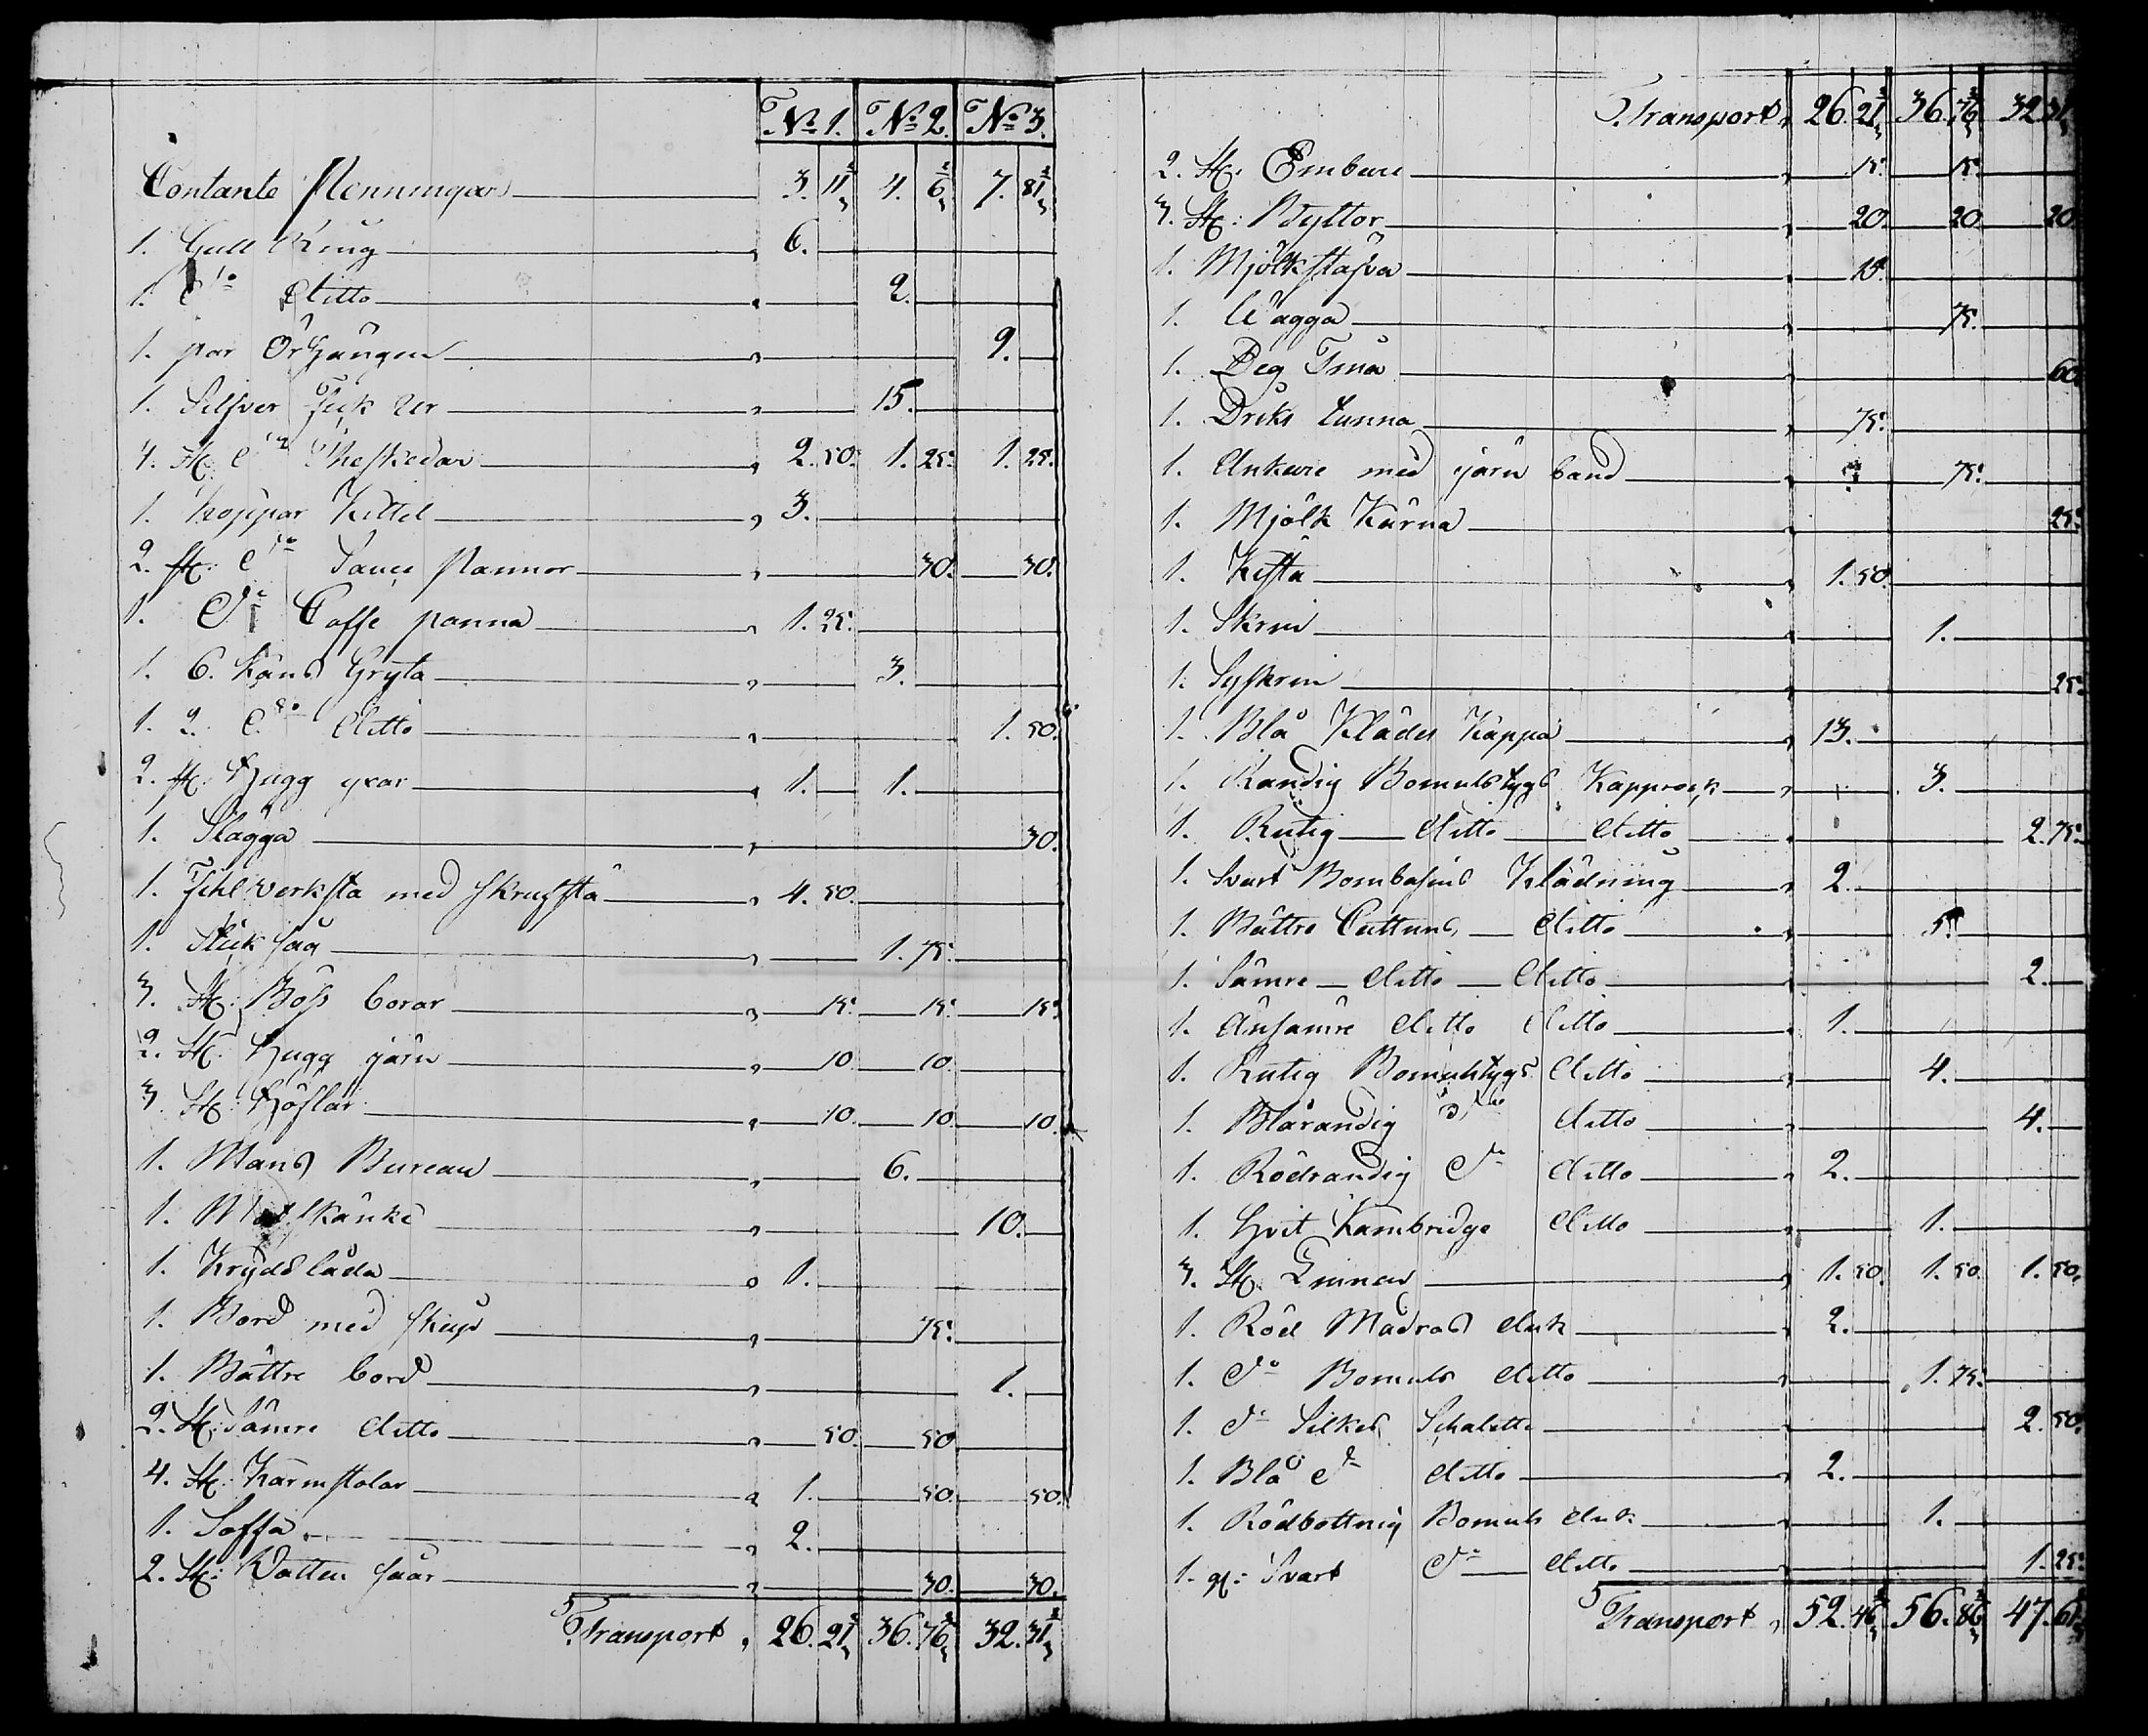 N:o 1. N:o 2. N:o 3.
Contante Penningar 3. 11 2/3 4. 6 2/3 7. 81 2/3
1. Gull Ring 6.
1. d:o ditto 2.
1. par Örhängen 9.
1. Silfver Fick Ur 15.
4. st: d:o Theskedar 2. 50. 1. 25. 1. 25.
1. Koppar Kittel 3.
2. st: d:o Sauce Pannor 30. 30.
1. d:o Caffe panna 1. 25.
1. 6. Kands Gryta 3.
1. 2. d:o ditto 1. 50.
2. st: Hugg yxar 1. 1.
1. Slägga 30.
1. Fihl verkstå med skrufstå 4. 50.
1. Stick såg 1. 75.
3. st: Böss borar 15. 15. 15.
2. st: Hugg järn 10. 10.
3. st: Höflar 10. 10. 10.
1. Mans Bureau 6.
1. Matskänke 10.
1. Kryddlåda 1.
1. Bord med skåp 75.
1. Bättre bord 1.
2. st: Sämre ditto 50. 50
4. st: Karmstolar 1. 50. 50.
1. Soffa 2.
2. st: Vatten såar 30. 30.
Transport 26. 21 2/3 36. 76 2/3 32. 31 2/3
Transport 26. 21 2/3 36. 76 2/3 32. 31
2. st: Embare 15. 15.
3. st: Byttor 20. 20. 20.
1. Mjölkstäfva 15.
1. Vagga 75.
1. Deg Tråg 60.
1. Dricks tunna 75.
1. Ankare med järn band 75.
1. Mjölk Kärna 25.
1. Kista 1. 50.
1. Skrin 1.
1. Syskrin 25.
1. Blå Klädes Kappa 13.
1. Randig Bomulstygs Kapprock 3.
1. Rutig ditto ditto 2. 75.
1. Svart Bombasins Klädning 2.
1. Bättre Cattuns ditto 5.
1. Sämre ditto ditto 2.
1. Ännsämre ditto ditto 1.
1. Rutig Bomulstygs ditto 4.
1. Blårandig d:o ditto 4.
1. Rödrandig d:o ditto 2.
1. Hvit Kambridge ditto 1.
3. st: Linnen 1. 50. 1. 50. 1. 50.
1. Röd Madras duk 2.
1. d:o Bomuls ditto 1. 75.
1. d:o Silkes Schalette 2. 50.
1. Blå d:o ditto 2.
1. Rödbottnig Bomuls duk 1.
1. Svart d:o ditto 1. 25.
Transport 52. 46 2/3 56. 86 2/3 47. 61